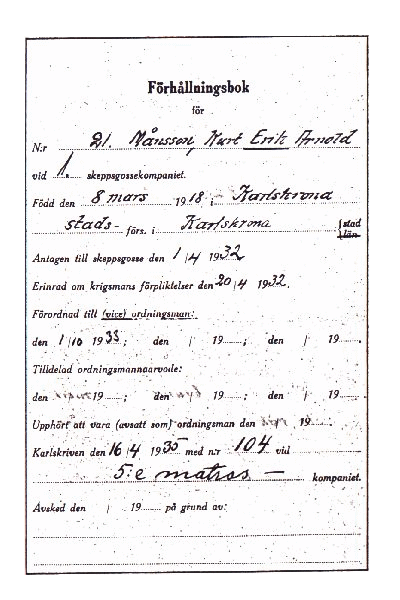 Förhållningsbok
för
N:r 21. Månsson, Kurt Erik Arnold
vid 1. skeppsgossekompaniet.
Född den 8 mars 1918 i Karlskrona
stads- förs. i Karlskrona stad län
Antagen till skeppsgosse den 1/4 1932
Erinrad om krigsmans förpliktelser den 20/4 1932.
Förordnad till (vice) ordningsman:
den 1/10 1933; den / 19 ; den / 19 .
Tilldelad ordningsmannaarvode:
den 19 ; den 19 ; den / 19 .
Upphört att vara (avsatt som) ordningsman den 19 .
Karlskriven den 16/4 1935 med n:r 104 vid
5:e matros — kompaniet.
Avsked den / 19 på grund av: